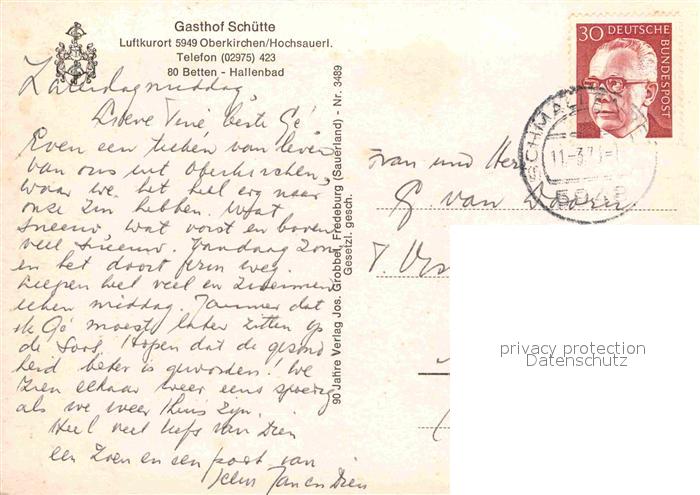 Gasthof Schütte
Luftkurort 5949 Oberkirchen/Hochsauerl.
Telefon (02975) 423
80 Betten - Hallenbad
Zaterdagmiddag
Lieve Tine, beste Gé
Even een teken van leven
van ons uit Oberkirchen,
waar we het heel erg naar
onze zin hebben. Wat
sneeuw, wat vorst en boven
veel sneeuw. Vandaag zon
en het dooit fern weg.
Liepen heel veel en zwemmen
iedere middag. Jammer dat
ik Gé moest laten zitten op
de Soos. Hopen dat de gezond
heid beter is geworden. We
zien elkaar weer eens spoedig
als we weer thuis zijn.
Heel veel liefs van Dien
een zoen en een poot van
Jan en Dien
90 Jahre Verlag Jos. Grobbel, Fredeburg (Sauerland) - Nr. 3489
Gesetzl. gesch.
30 DEUTSCHE
BUNDESPOST
SCHMALL
11.-3.7
Frau und Herr
G. van
privacy protection
Datenschutz